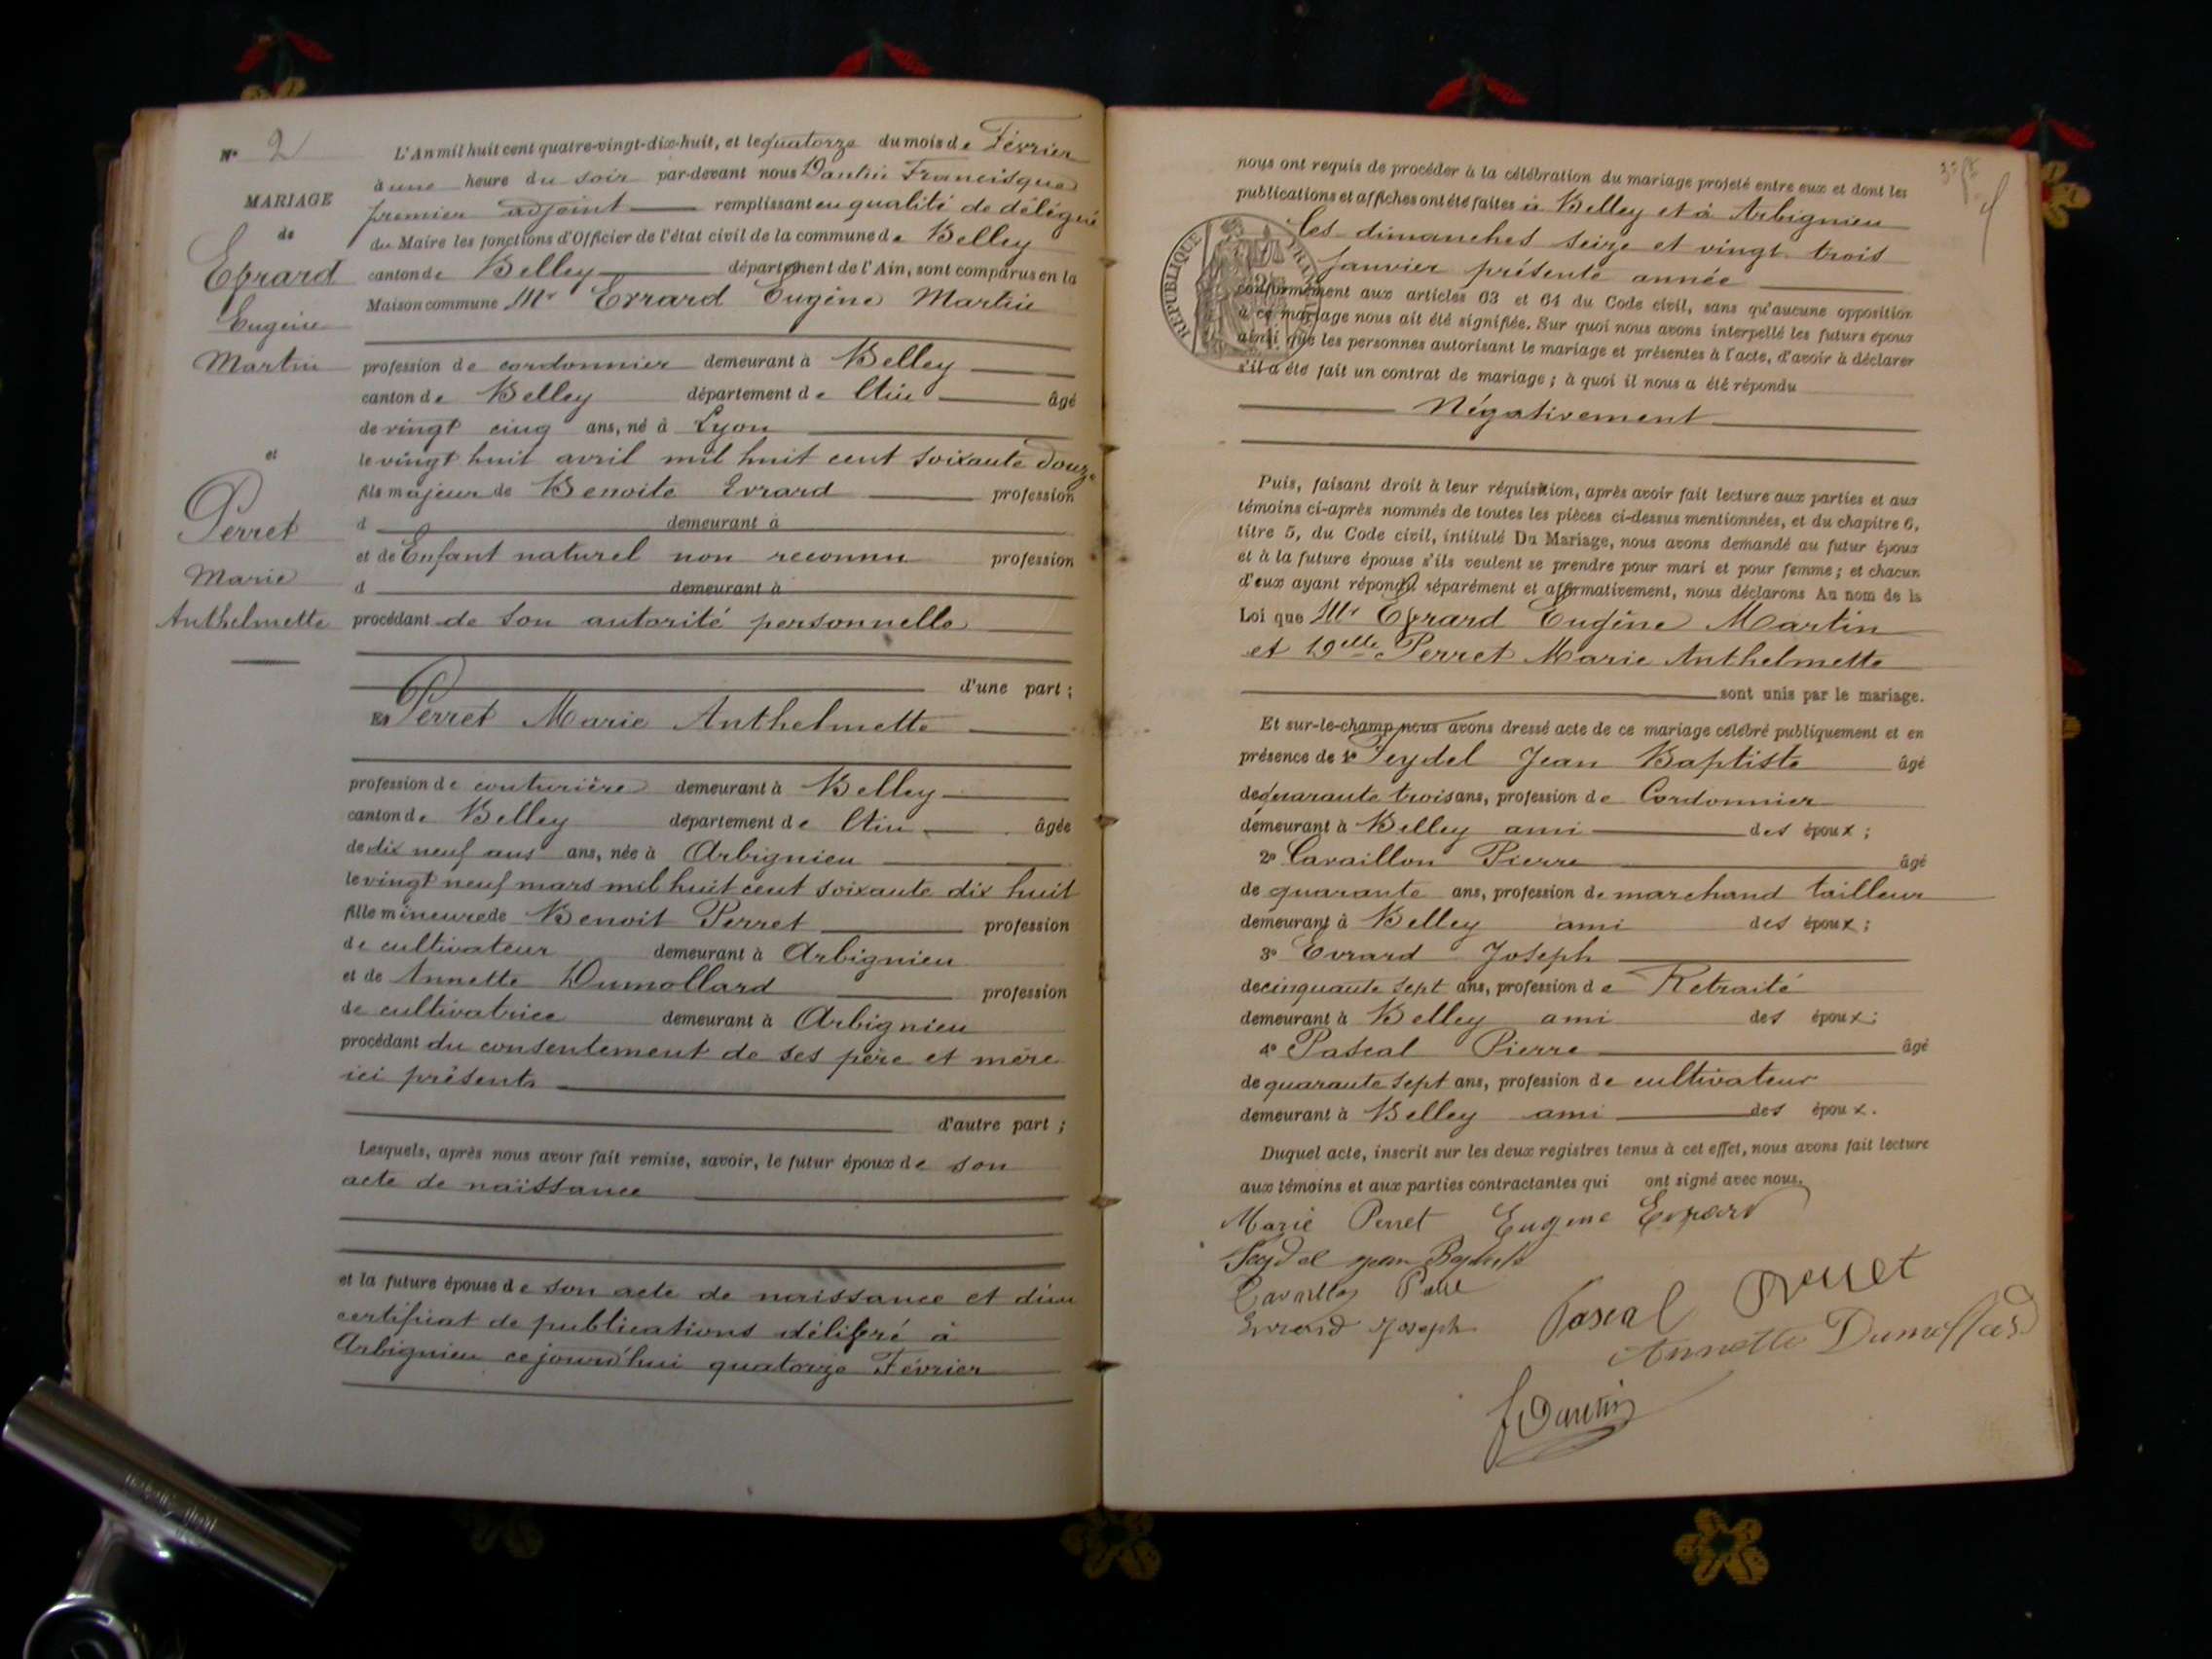 N° 2
MARIAGE
de
Evrard
Eugène
Martin
et
Perret
Marie
Anthelmette
L'An mil huit cent quatre-vingt-dix-huit, et le quatorze du mois de Février
à une heure du soir par-devant nous Dantin Francisque
premier adjoint remplissant en qualité de délégué
du Maire les fonctions d'Officier de l'état civil de la commune de Belley
canton de Belley département de l'Ain, sont comparus en la
Maison commune Mr Evrard Eugène Martin
profession de cordonnier demeurant à Belley
canton de Belley département de l'Ain âgé
de vingt cinq ans, né à Lyon
le vingt huit avril mil huit cent soixante douze
fils majeur de Benoite Evrard profession
d demeurant à
et de Enfant naturel non reconnu profession
d demeurant à
procédant de son autorité personnelle
d'une part ;
Et Perret Marie Anthelmette
profession de couturière demeurant à Belley
canton de Belley département de l'Ain âgée
de dix neuf ans ans, née à Arbignieu
le vingt neuf mars mil huit cent soixante dix huit
fille mineure de Benoit Perret profession
de cultivateur demeurant à Arbignieu
et de Annette Dumollard profession
de cultivatrice demeurant à Arbignieu
procédant du consentement de ses père et mère
ici présents
d'autre part ;
Lesquels, après nous avoir fait remise, savoir, le futur époux de son
acte de naissance
et la future épouse de son acte de naissance et d'un
certificat de publications délivré à
Arbignieu ce jourd'hui quatorze Février
nous ont requis de procéder à la célébration du mariage projeté entre eux et dont les
publications et affiches ont été faites à Belley et à Arbignieu
les dimanches seize et vingt trois
janvier présente année
RÉPUBLIQUE
conformément aux articles 63 et 64 du Code civil, sans qu'aucune opposition
à ce mariage nous ait été signifiée. Sur quoi nous avons interpellé les futurs époux
ainsi que les personnes autorisant le mariage et présentes à l'acte, d'avoir à déclarer
s'il a été fait un contrat de mariage ; à quoi il nous a été répondu
Négativement
Puis, faisant droit à leur réquisition, après avoir fait lecture aux parties et aux
témoins ci-après nommés de toutes les pièces ci-dessus mentionnées, et du chapitre 6,
titre 5, du Code civil, intitulé Du Mariage, nous avons demandé au futur époux
et à la future épouse s'ils veulent se prendre pour mari et pour femme ; et chacun
d'eux ayant répondu séparément et affirmativement, nous déclarons Au nom de la
Loi que Mr Evrard Eugène Martin
et Delle Perret Marie Anthelmette
sont unis par le mariage.
Et sur-le-champ nous avons dressé acte de ce mariage célébré publiquement et en
présence de 1° Seydel Jean Baptiste âgé
de quarante trois ans, profession de Cordonnier
demeurant à Belley ami des époux ;
2° Cavaillon Pierre âgé
de quarante ans, profession de marchand tailleur
demeurant à Belley ami des époux ;
3° Evrard Joseph
de cinquante sept ans, profession de Retraité
demeurant à Belley ami des époux ;
4° Pascal Pierre âgé
de quarante sept ans, profession de cultivateur
demeurant à Belley ami des époux.
Duquel acte, inscrit sur les deux registres tenus à cet effet, nous avons fait lecture
aux témoins et aux parties contractantes qui ont signé avec nous.
Marie Perret Eugène Evrard
Seydel jean Baptiste
Evrard Joseph Pascal Perret
Annette Dumollard
Dantin